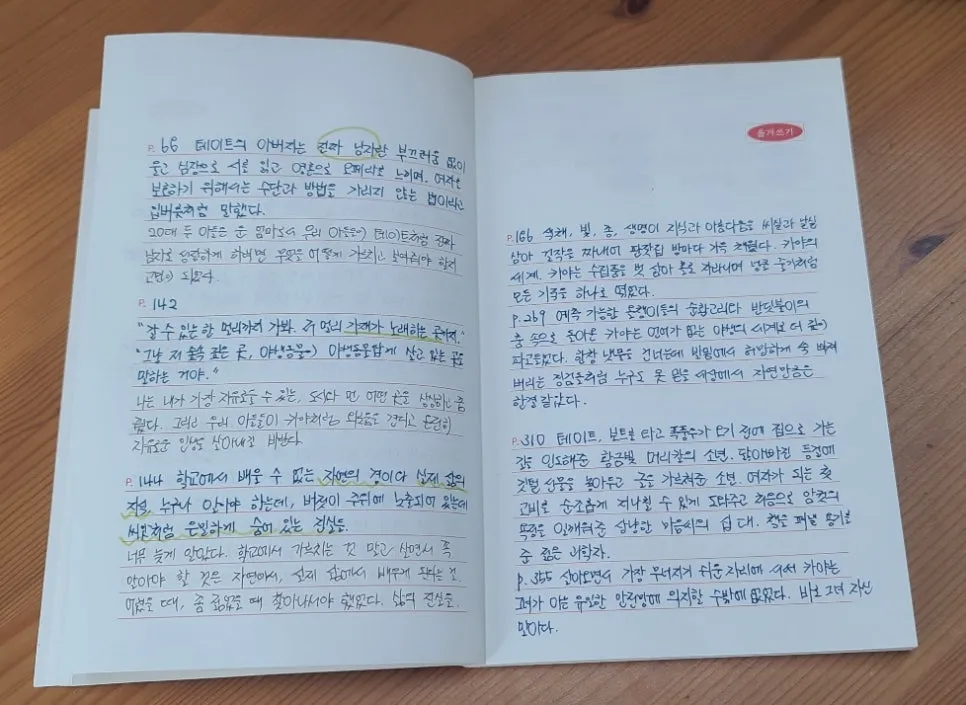 P. 66 테이트의 아버지는 진짜 남자란 부끄러움 없이
울고 심장으로 시를 읽고 영혼으로 오페라를 느끼며, 여자를
보호하기 위해서는 수단과 방법을 가리지 않는 법이라고
입버릇처럼 말했다.
20대 두 아들을 둔 엄마로서 우리 아들들이 테이트처럼 진짜
남자로 성장하게 하려면 무엇을 어떻게 가르치고 보여줘야 할지
고민이 되었다.
P. 142
"갈 수 있는 한 멀리까지 가봐. 저 멀리 가재가 노래하는 곳까지."
"그냥 저 숲속 깊은 곳, 야생동물이 야생동물답게 살고 있는 곳을
말하는 거야."
나는 내가 가장 자유로울 수 있는, 먼, 어떤 곳을 상상하는
그리고 우리 아들들이 카야처럼 외로움을 견디고 온전히
자유로운 인생을 살아내길 바랐다.
P. 144 학교에서 배울 수 없는 자연의 경이와 실제 삶의
지식. 누구나 알아야 하는데, 버젓이 주위에 노출되어 있는데
씨앗처럼 은밀하게 숨어 있는 진실들.
너무 늦게 알았다. 학교에서 가르치는 것 말고 살면서 꼭
알아야 할 것은 자연에서, 실제 삶에서 배우게 된다는 것.
어렸을 때, 좀 젊었을 때 찾아나서야 했었다. 삶의 진실을.
옮겨쓰기
P. 166 색채, 빛, 종, 생명이 지식과 아름다움을 씨실과 날실
삼아 걸작을 짜내어 판잣집 방마다 가득 채웠다. 카야의
세계. 카야는 수집품을 벗 삼아 홀로 자라나며 넝쿨 줄기처럼
모든 기적을 하나로 엮었다.
p. 269 예측 가능한 올챙이들의 순환고리와 반딧불이의
춤 속으로 돌아온 카야는 언어가 없는 야생의 세계로 더 깊이
파고들었다. 한창 냇물을 건너는데 발밑에서 허망하게 쑥 빠져
버리는 징검돌처럼 누구도 못 믿을 세상에서 자연만큼은
한결같았다.
P. 310 테이트, 보트를 타고 폭풍우가 오기 전에 집으로 가는
길을 인도해준 황금빛 머리칼의 소년. 닳아빠진 등걸에
깃털 선물을 놓아두고 글을 가르쳐준 소년. 여자가 되는 첫
고비를 순조롭게 지나칠 수 있게 도와주고 처음으로 암컷의
욕정을 일깨워준 상냥한 마음씨의 십 대. 책을 펴낼 용기를
준 젊은 과학자.
p. 355 살아오면서 가장 무너지기 쉬운 자리에 서서 카야는
그녀가 아는 유일한 안전망에 의지할 수밖에 없었다. 바로 그녀 자신
말이다.